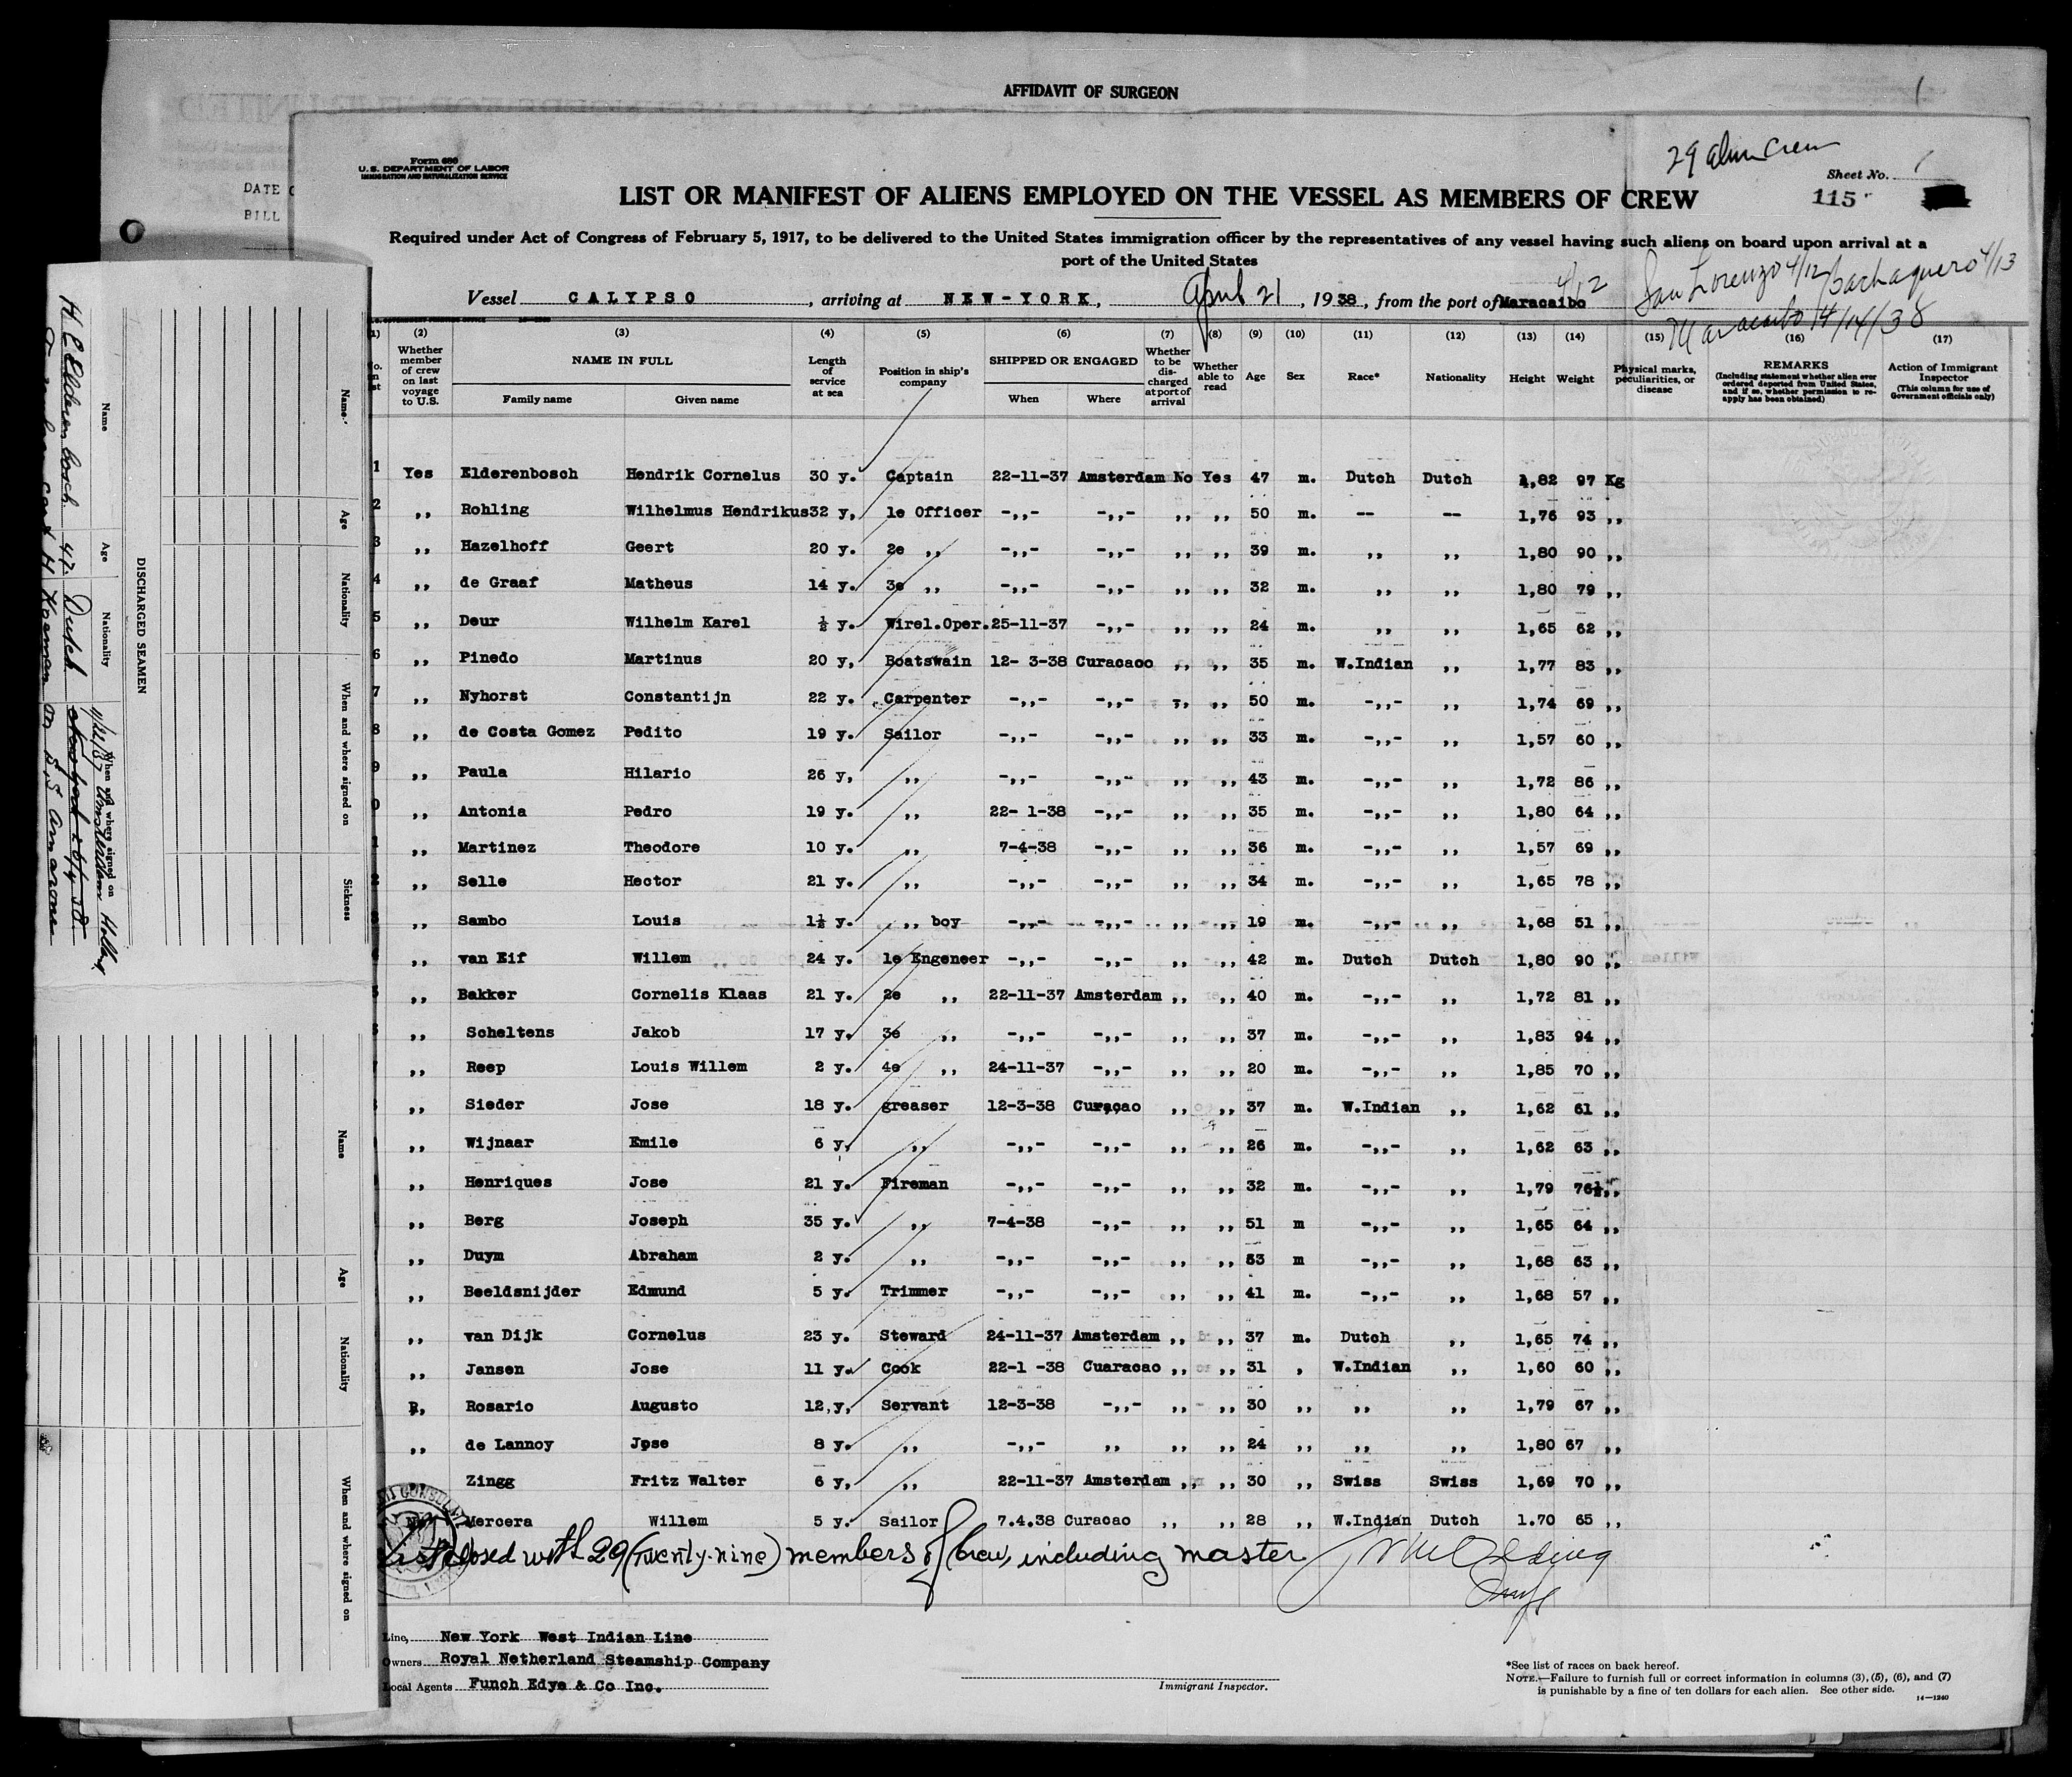 AFFIDAVIT OF SURGEON
1
DATE
BILL
Form 680
U.S. DEPARTMENT OF LABOR
IMMIGRATION AND NATURALIZATION SERVICE
29 alien crew
Sheet No. 1
115
LIST OR MANIFEST OF ALIENS EMPLOYED ON THE VESSEL AS MEMBERS OF CREW
Required under Act of Congress of February 5, 1917, to be delivered to the United States immigration officer by the representatives of any vessel having such aliens on board upon arrival at a
port of the United States
Vessel CALYPSO, arriving at NEW-YORK, April 21, 1938, from the port of Maracaibo 4/12
San Lorenzo 4/12 Bachaquero 4/13
Maracaibo 4/14/38
(2) (3) (4) (5) (6) (7) (8) (9) (10) (11) (12) (13) (14) (15) (16) (17)
Whether member of crew on last voyage to U.S. NAME IN FULL Family name Given name Length of service at sea Position in ship's company SHIPPED OR ENGAGED When Where Whether to be discharged at port of arrival Whether able to read Age Sex Race* Nationality Height Weight Physical marks, peculiarities, or disease REMARKS (Including statement whether alien ever ordered deported from United States, and if so, whether permission to reapply has been obtained) Action of Immigrant Inspector (This column for use of Government officials only)
1 Yes Elderenbosch Hendrik Cornelus 30 y. Captain 22-11-37 Amsterdam No Yes 47 m. Dutch Dutch 1,82 97 Kg
2 ,, Rohling Wilhelmus Hendrikus 32 y, 1e Officer -,,- -,,- ,, ,, 50 m. -- -- 1,76 93 ,,
3 ,, Hazelhoff Geert 20 y. 2e ,, -,,- -,,- ,, ,, 39 m. ,, ,, 1,80 90 ,,
4 ,, de Graaf Matheus 14 y. 3e ,, -,,- -,,- ,, ,, 32 m. ,, ,, 1,80 79 ,,
5 ,, Deur Wilhelm Karel ½ y. Wirel.Oper. 25-11-37 -,,- ,, ,, 24 m. ,, ,, 1,65 62 ,,
6 ,, Pinedo Martinus 20 y, Boatswain 12- 3-38 Curacao ,, ,, 35 m. W.Indian ,, 1,77 83 ,,
7 ,, Nyhorst Constantijn 22 y. Carpenter -,,- -,,- ,, ,, 50 m. -,,- ,, 1,74 69 ,,
8 ,, de Costa Gomez Pedito 19 y. Sailor -,,- -,,- ,, ,, 33 m. -,,- ,, 1,57 60 ,,
9 ,, Paula Hilario 26 y, ,, -,,- -,,- ,, ,, 43 m. -,,- ,, 1,72 86 ,,
0 ,, Antonia Pedro 19 y. ,, 22- 1-38 -,,- ,, ,, 35 m. -,,- ,, 1,80 64 ,,
1 ,, Martinez Theodore 10 y. ,, 7-4-38 -,,- ,, ,, 36 m. -,,- ,, 1,57 69 ,,
2 ,, Selle Hector 21 y. ,, -,,- -,,- ,, ,, 34 m. -,,- ,, 1,65 78 ,,
,, Sambo Louis 1½ y. ,, boy -,,- -,,- ,, ,, 19 m. -,,- ,, 1,68 51 ,,
,, van Eif Willem 24 y. 1e Engeneer -,,- -,,- ,, ,, 42 m. Dutch Dutch 1,80 90 ,,
,, Bakker Cornelis Klaas 21 y. 2e ,, 22-11-37 Amsterdam ,, ,, 40 m. -,,- ,, 1,72 81 ,,
,, Scheltens Jakob 17 y. 3e ,, -,,- -,,- ,, ,, 37 m. -,,- ,, 1,83 94 ,,
,, Reep Louis Willem 2 y. 4e ,, 24-11-37 -,,- ,, ,, 20 m. -,,- ,, 1,85 70 ,,
,, Sieder Jose 18 y. greaser 12-3-38 Curaçao ,, ,, 37 m. W.Indian ,, 1,62 61 ,,
,, Wijnaar Emile 6 y. ,, -,,- -,,- ,, ,, 26 m. -,,- ,, 1,62 63 ,,
,, Henriques Jose 21 y. Fireman -,,- -,,- ,, ,, 32 m. -,,- ,, 1,79 76½ ,,
,, Berg Joseph 35 y. ,, 7-4-38 -,,- ,, ,, 51 m -,,- ,, 1,65 64 ,,
,, Duym Abraham 2 y. ,, -,,- -,,- ,, ,, 53 m -,,- ,, 1,68 63 ,,
,, Beeldsnijder Edmund 5 y. Trimmer -,,- -,,- ,, ,, 41 m. -,,- ,, 1,68 57 ,,
,, van Dijk Cornelus 23 y. Steward 24-11-37 Amsterdam ,, ,, 37 m. Dutch ,, 1,65 74 ,,
,, Jansen Jose 11 y. Cook 22-1 -38 Cuaracao ,, ,, 31 , W.Indian ,, 1,60 60 ,,
,, Rosario Augusto 12,y, Servant 12-3-38 -,,- ,, ,, 30 ,, ,, ,, 1,79 67 ,,
,, de Lannoy Jose 8 y. ,, -,,- ,, ,, ,, 24 ,, ,, ,, 1,80 67 ,,
Zingg Fritz Walter 6 y, ,, 22-11-37 Amsterdam ,, ,, 30 ,, Swiss Swiss 1,69 70 ,,
Mercera Willem 5 y. Sailor 7.4.38 Curacao ,, ,, 28 ,, W.Indian Dutch 1.70 65 ,,
List closed with 29 (twenty-nine) members of Crew, including master
Line, New York West Indian Line
Owners Royal Netherland Steamship Company
Local Agents Funch Edye & Co Inc.
Immigrant Inspector.
*See list of races on back hereof.
NOTE.—Failure to furnish full or correct information in columns (3), (5), (6), and (7)
is punishable by a fine of ten dollars for each alien. See other side.
14—1240
DISCHARGED SEAMEN
Name Age Nationality When and where signed on
H C Elderenbosch 47. Dutch 11/22/37 Amsterdam Holland
on S.S. Amazone
Name Age Nationality When and where signed on Sickness
Name Age Nationality When and where signed on